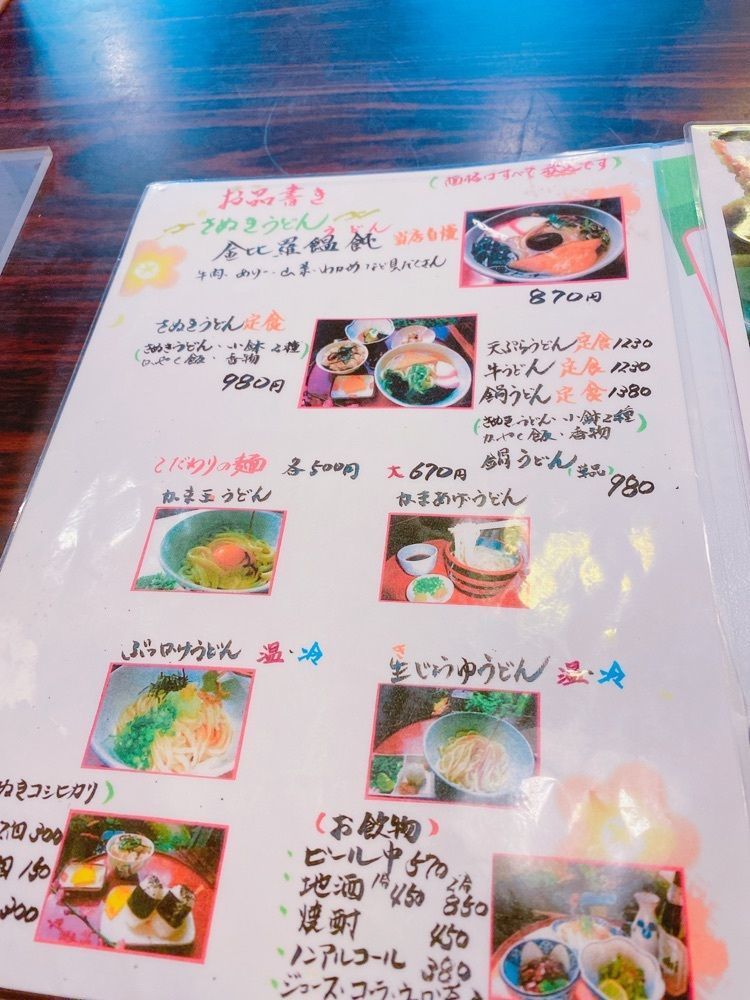 お品書き
(価格はすべて税込です)
さぬきうどん
うどん
金比羅饂飩 当店自慢
牛肉、あさり・山菜・わかめなど具だくさん
870円
さぬきうどん定食
(さぬきうどん・小鉢2種
かやく飯・香物)
980円
天ぷらうどん定食1230
牛うどん 定食1230
鍋うどん 定食1380
(さぬきうどん・小鉢2種
かやく飯・香物)
鍋うどん(単品) 980
こだわりの麺 各500円 大670円
かま玉うどん
かまあげうどん
ぶっかけうどん 温・冷
生じょうゆうどん 温・冷
ぬきコシヒカリ)
300
150
300
(お飲物)
ビール中570
地酒 1合450 2合850
焼酎 450
ノンアルコール 380
ジュース・コーラ・ウーロン茶